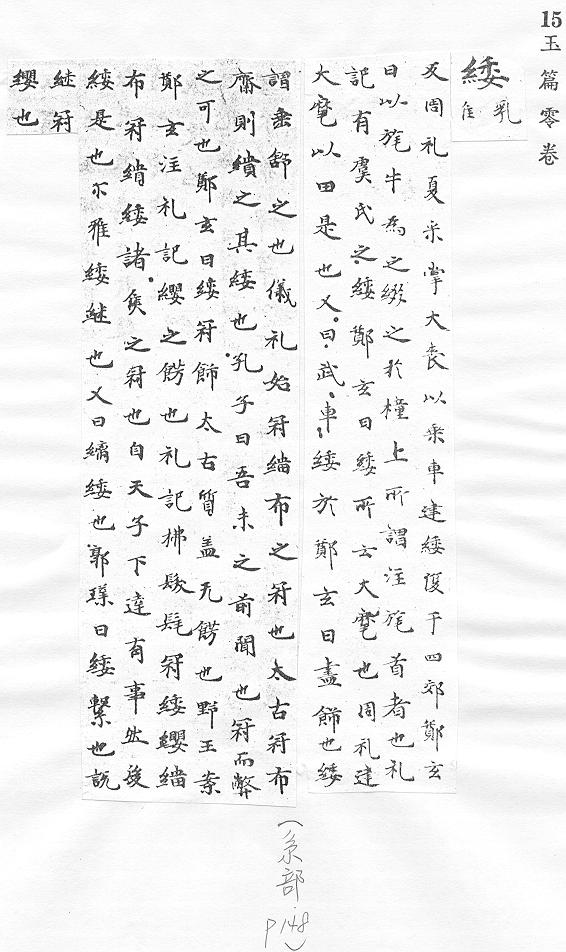 15 玉篇零卷
緌 乳隹
反周礼夏采掌大喪以乗車建綏復于四郊鄭玄
曰以旄牛為之綴之於橦上所謂注旄首者也礼
記有虞氏之緌鄭玄曰緌所云大麾也周礼建
大麾以田是也又曰武車緌於鄭玄曰盡飾也緌
謂垂舒之也儀礼始冠緇布之冠也太古冠布
齋則繢之其緌也孔子曰吾未之前聞也冠而弊
之可也鄭玄曰緌冠飾太古質盖无餝也野王案
鄭玄注礼記纓之餝也礼記拂髦冠緌纓緇
布冠繢緌諸侯之冠也自天子下達有事然後
緌是也尒雅緌継也又曰縭緌也郭璞曰緌繫也説
継冠
纓也
(糸部 P148)